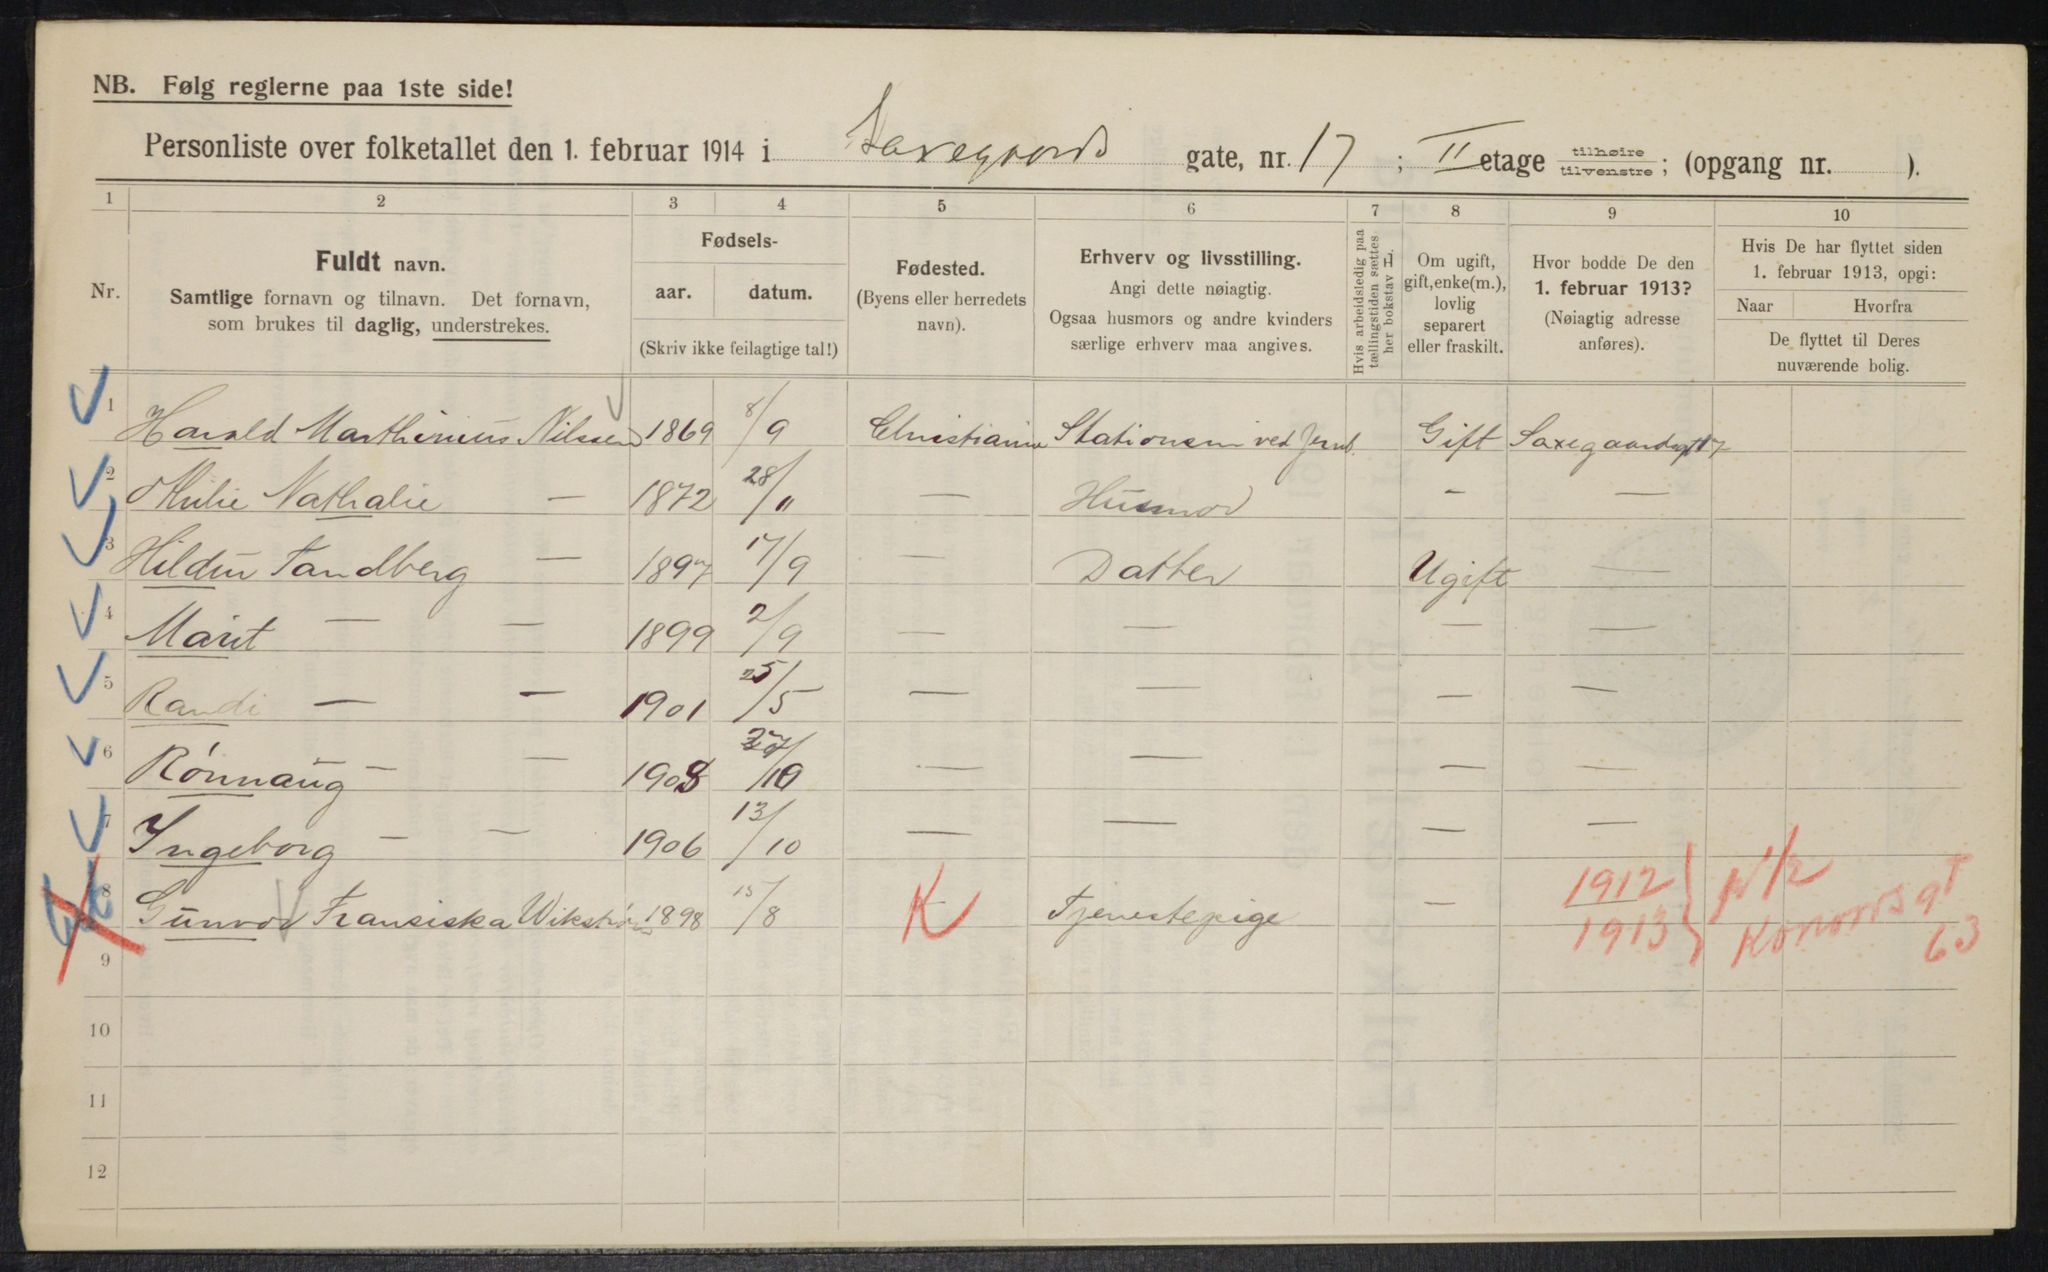 NB. Følg reglerne paa 1ste side!
Personliste over folketallet den 1. februar 1914 i Saxegaards gate, nr. 17; II etage tilhøire tilvenstre; (opgang nr. ).
1 2 3 4 5 6 7 8 9 10
Nr.
Fuldt navn.
Samtlige fornavn og tilnavn. Det fornavn, som brukes til daglig, understrekes.
Fødsels-
aar. datum.
(Skriv ikke feilagtige tal!)
Fødested.
(Byens eller herredets navn).
Erhverv og livsstilling.
Angi dette nøiagtig.
Ogsaa husmors og andre kvinders særlige erhverv maa angives.
Hvis arbeidsledig paa tællingstiden sættes her bokstav L.
Om ugift, gift, enke(m.), lovlig separert eller fraskilt.
Hvor bodde De den 1. februar 1913?
(Nøiagtig adresse anføres).
Hvis De har flyttet siden 1. februar 1913, opgi:
Naar Hvorfra
De flyttet til Deres nuværende bolig.
1 Harald Marthinius Nilssen 1869 8/9 Christiania Stationsm ved Jernb. Gift Saxegaardsgt 17
2 Nathalie — 1872 28/" — Husmor - —
3 Hildur Tandberg — 1897 17/9 — Datter Ugift —
4 Marit — — 1899 2/9 — — — —
5 Randi — — 1901 25/5 — — — —
6 Rønnaug — — 1908 /10 — — — —
7 Ingeborg — — 1906 13/10 — — — —
8 Gunvor Fransiska Wikstrøm 1898 15/8 K Tjenestepige — 1912 1913 gt 63
9
10
11
12